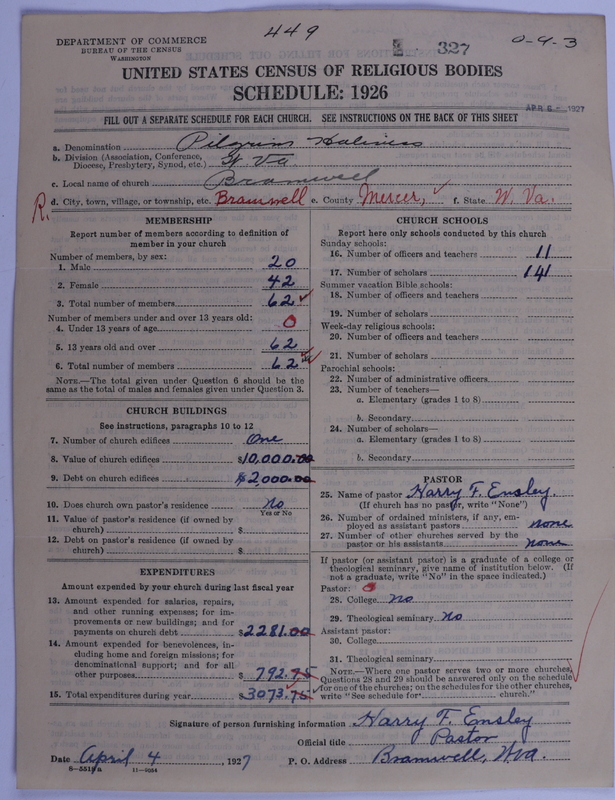 449
DEPARTMENT OF COMMERCE
BUREAU OF THE CENSUS
WASHINGTON
327
0-4-3
UNITED STATES CENSUS OF RELIGIOUS BODIES
SCHEDULE: 1926
APR 6 - 1927
FILL OUT A SEPARATE SCHEDULE FOR EACH CHURCH. SEE INSTRUCTIONS ON THE BACK OF THIS SHEET
a. Denomination Pilgrim Holiness
b. Division (Association, Conference, Diocese, Presbytery, Synod, etc.) W Va
c. Local name of church Bramwell
R. d. City, town, village, or township, etc. Bramwell e. County Mercer, f. State W. Va.
MEMBERSHIP
Report number of members according to definition of
member in your church
Number of members, by sex:
1. Male 20
2. Female 42
3. Total number of members 62
Number of members under and over 13 years old:
4. Under 13 years of age 0
5. 13 years old and over 62
6. Total number of members 62
NOTE.—The total given under Question 6 should be the
same as the total of males and females given under Question 3.
CHURCH BUILDINGS
See instructions, paragraphs 10 to 12
7. Number of church edifices One
8. Value of church edifices $10,000.00
9. Debt on church edifices $2000.00
10. Does church own pastor's residence No
Yes or No
11. Value of pastor's residence (if owned by
church) $
12. Debt on pastor's residence (if owned by
church) $
EXPENDITURES
Amount expended by your church during last fiscal year
13. Amount expended for salaries, repairs,
and other running expenses; for im-
provements or new buildings; and for
payments on church debt $2281.00
14. Amount expended for benevolences, in-
cluding home and foreign missions; for
denominational support; and for all
other purposes $792.75
15. Total expenditures during year $3073.75
CHURCH SCHOOLS
Report here only schools conducted by this church
Sunday schools:
16. Number of officers and teachers 11
17. Number of scholars 141
Summer vacation Bible schools:
18. Number of officers and teachers
19. Number of scholars
Week-day religious schools:
20. Number of officers and teachers
21. Number of scholars
Parochial schools:
22. Number of administrative officers
23. Number of teachers—
a. Elementary (grades 1 to 8)
b. Secondary
24. Number of scholars—
a. Elementary (grades 1 to 8)
b. Secondary
PASTOR
25. Name of pastor Harry F. Ensley.
(If church has no pastor, write "None")
26. Number of ordained ministers, if any, em-
ployed as assistant pastors none
27. Number of other churches served by the
pastor or his assistants none
If pastor (or assistant pastor) is a graduate of a college or
theological seminary, give name of institution below. (If
not a graduate, write "No" in the space indicated.)
Pastor:
28. College No
29. Theological seminary No
Assistant pastor:
30. College
31. Theological seminary
NOTE.—Where one pastor serves two or more churches,
Questions 28 and 29 should be answered only on the schedule
for one of the churches; on the schedules for the other churches,
write "See schedule for church."
Signature of person furnishing information Harry F. Ensley
Official title Pastor
Date April 4, 1927 P. O. Address Bramwell, W.Va.
8-5519a 11-9054